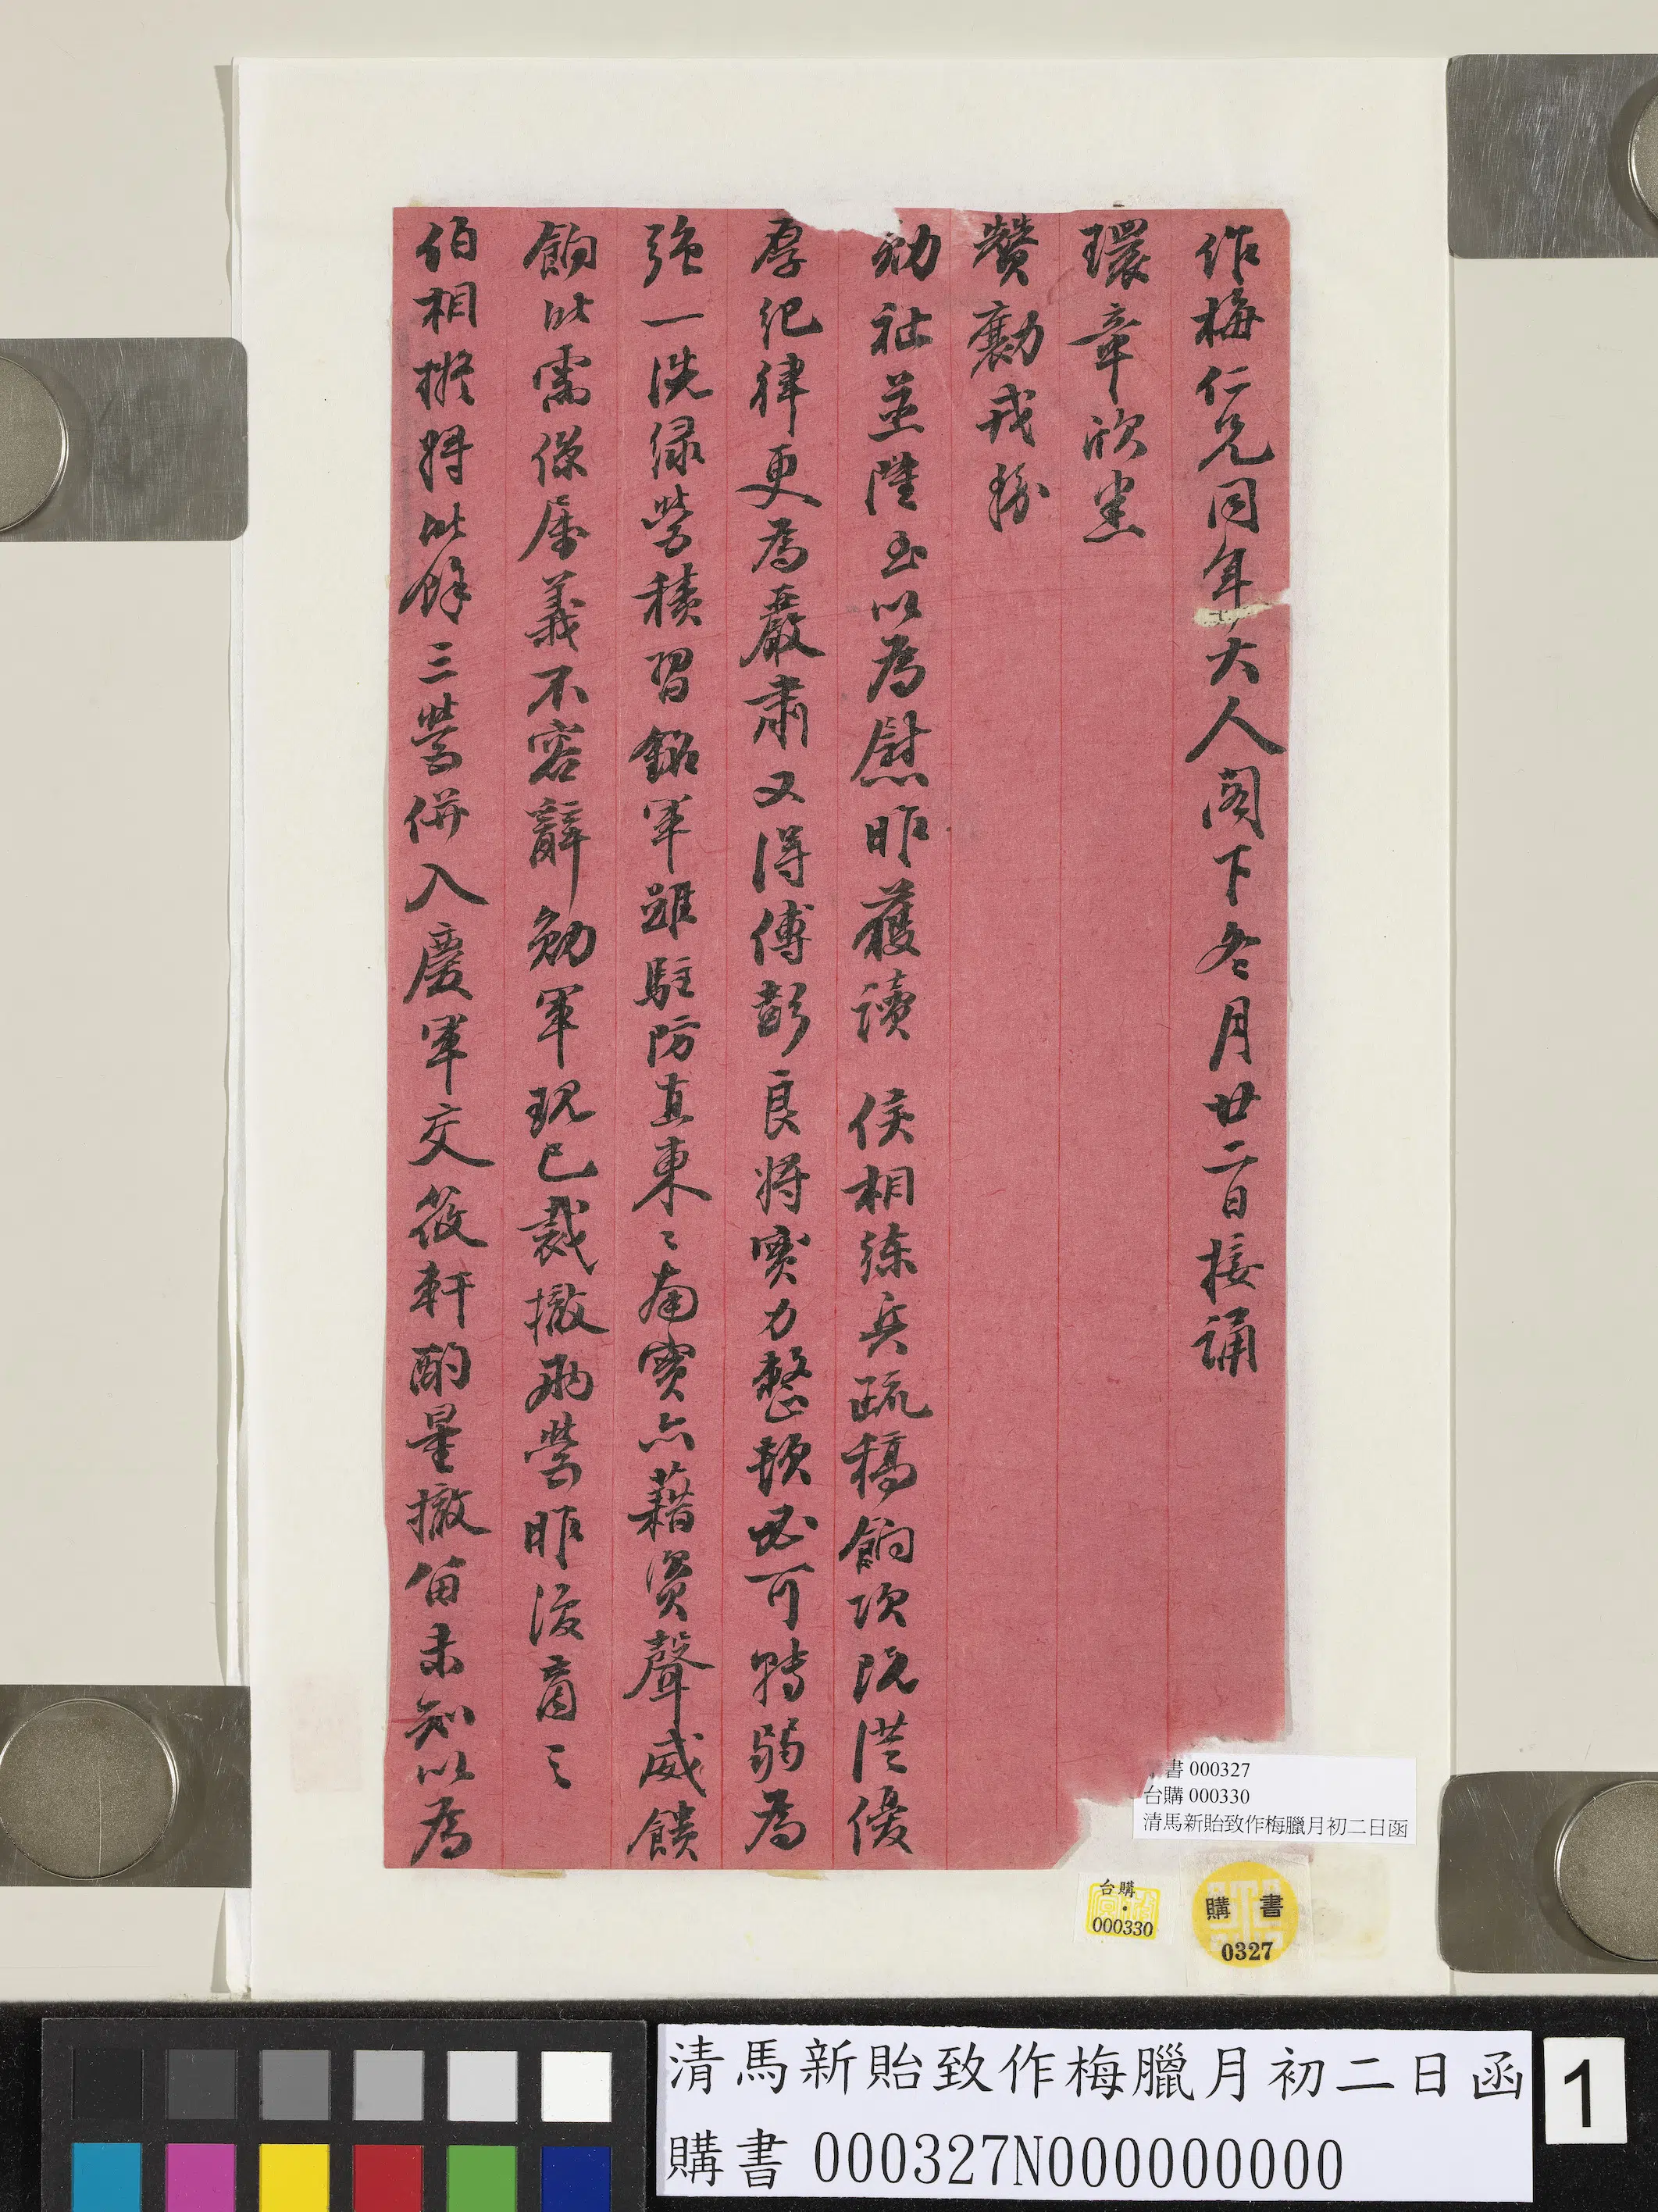 作梅仁兄同年大人閣下冬月廿二日接誦
環章欣悉
贊勷戎務
勛祉並隆至以為慰昨獲讀 侯相練兵疏稿餉項既從優
厚紀律更為嚴肅又得傅彭良將實力整頓必可轉弱為
強一洗綠營積習銘軍雖駐防直東〻南實亦藉資聲威饋
餉所需係屬義不容辭勛軍現已裁撤兩營昨復商之
伯相擬將所餘三營併入慶軍交筱軒酌量撤留未知以為
書 000327
台購 000330
清馬新貽致作梅臘月初二日函
台購
000330
購書
0327
清馬新貽致作梅臘月初二日函
購書 000327N000000000
1